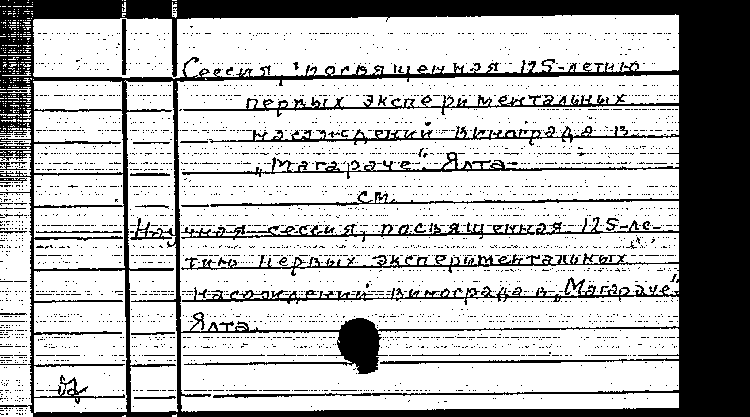 Сессия, посвященная 125-летию
первых экспериментальных
насаждений винограда в
„Магараче". Ялта.
см.
Научная сессия, посвященная 125-ле-
тию первых экспериментальных
насаждений винограда в „Магараче".
Ялта.